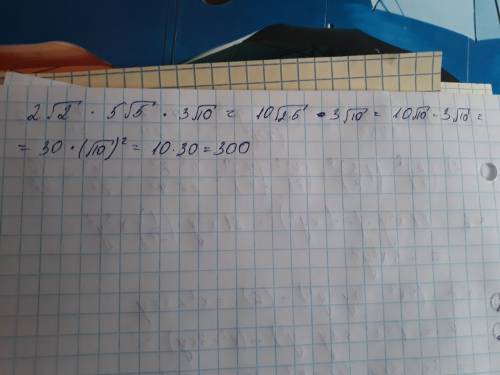 2√2 · 5√5 · 3√10 = 10√2·5 · 3√10 = 10√10 · 3√10 =
= 30 · (√10)² = 10·30 = 300